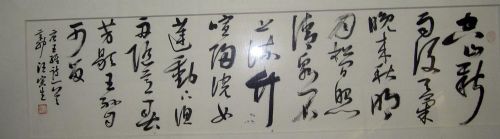 空山新
雨後天氣
晚來秋明
月松間照
清泉石
上流竹
喧歸浣女
蓮動下漁
舟隨意春
芳歇王孫自
可留
唐王維詩一首